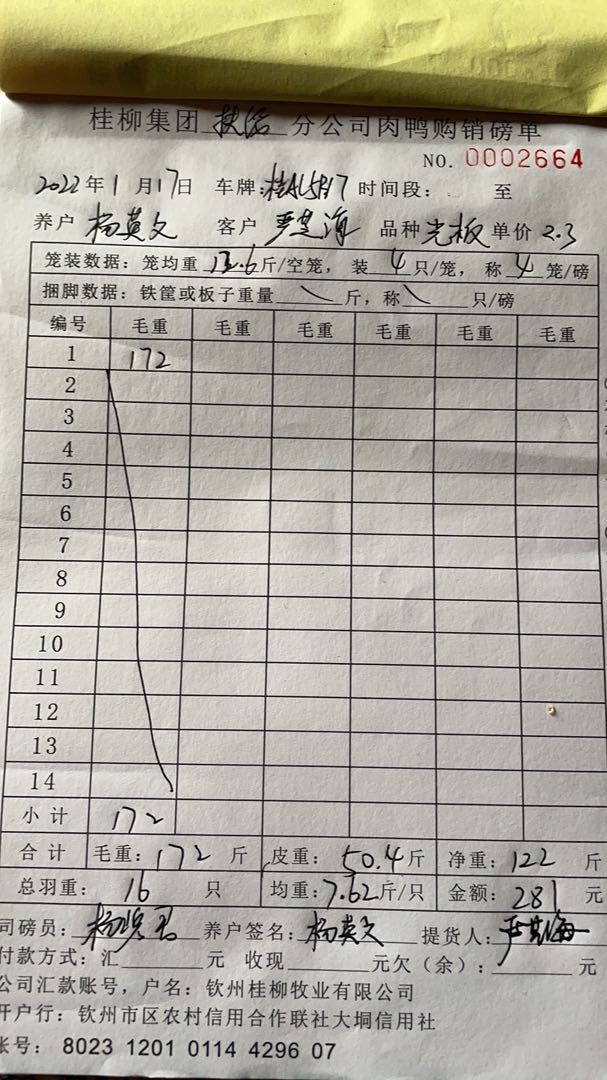 桂柳集团 扶绥 分公司肉鸭购销磅单
NO. 0002664
2022年1月17日 车牌: 时间段： 至
养户 杨英文 客户 品种 光板 单价 2.3
笼装数据：笼均重 12.6斤/空笼，装 4 只/笼，称 4 笼/磅
捆脚数据：铁筐或板子重量 \ 斤，称 \ 只/磅
编号 毛重 毛重 毛重 毛重 毛重 毛重
1 172
2
3
4
5
6
7
8
9
10
11
12
13
14
小计 172
合计 毛重：172 斤 皮重：50.4斤 净重：122 斤
总羽重： 16 只 均重：7.62斤/只 金额：281 元
司磅员： 养户签名：杨英文 提货人：
付款方式：汇 元 收现 元欠（余）： 元
公司汇款账号，户名：钦州桂柳牧业有限公司
开户行：钦州市区农村信用合作联社大垌信用社
账号：8023 1201 0114 4296 07